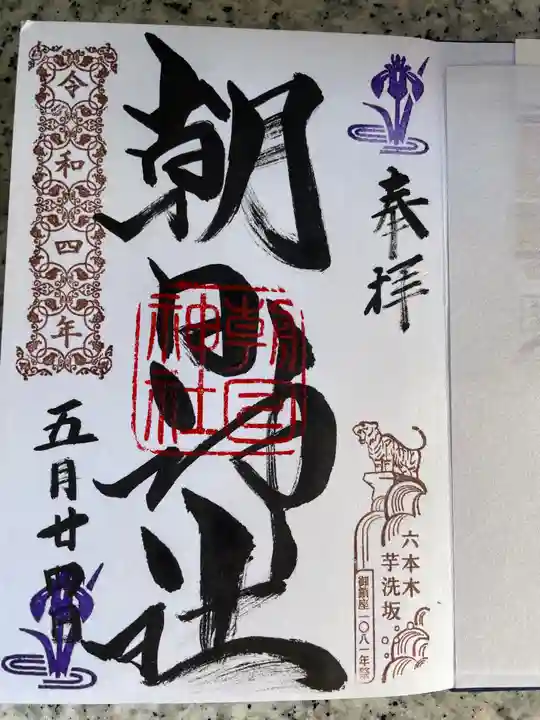 奉拝
六本木
芋洗坂
御鎮座一〇八一年祭
朝日神社
朝日
神社
令和四年
五月廿四日